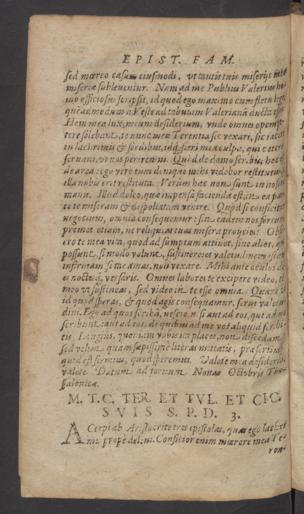 EPIST. FAM.
sed mœreo casum eiusmodi, vt tantis tuis miserijs meæ
miseriæ subleuentur. Nam ad me Publius Valerius ho-
mo officiosus scripsit, id quod ego maximo cum fletu legi,
quẽadmodum à Vestæ ad tabulam Valeriam ducta esses.
Hem mea lux, meum desiderium, vnde omnes opem pe-
tere solebant, te nunc mea Terentia sic vexari, sic iacere
in lachrimis & sordibus, idq́; fieri mea culpa, qui ceteros
seruaui, vt nos periremus. Quòd de domo scribis, hoc est
de area: ego verò tum deniq; mihi videbor restitutus, si
illa nobis erit restituta. Verùm hæc non sunt in nostra
manu. Illud doleo, quæ impensa facienda est, in eius par-
te te miseram & despoliatam venire. Quòd si conficitur
negocium, omnia consequemur: sin eadem nos fortuna
premet etiam, ne reliquias tuas misera proijcies? Obse-
cro te mea vita, quod ad sumptum attinet, sine alios, qui
possunt, si modo volunt, sustinere: et valetudinem istam
infirmam, si me amas, noli vexare. Mihi ante oculos di-
es noctesq́; versaris. Omnes labores te excipere video, ti-
meo vt sustineas, sed video in te esse omnia. Quare vt
id quod speras, & quod agis consequamur, serui valetu-
dini. Ego ad quos scribã, nescio, nisi aut ad eos, qui ad me
scribunt, aut ad eos, de quibus ad me vos aliquid scribi-
tis. Longius, quoniam vobis ita placet, non discedam:
sed velim, quàm sæpissime literas mittatis, præsertim si
quid est firmius, quod speremus. Valete mea desideria,
valete. Datum ad tertium Nonas Octobris Thes-
salonica.
M. T. C. TER. ET TVL. ET CIC.
SVIS S. P. D. 3.
ACcepi ab Aristocrito tres epistolas, quas ego lachry-
mis prope deleui. Conficior enim mœrore mea Te-
ren-